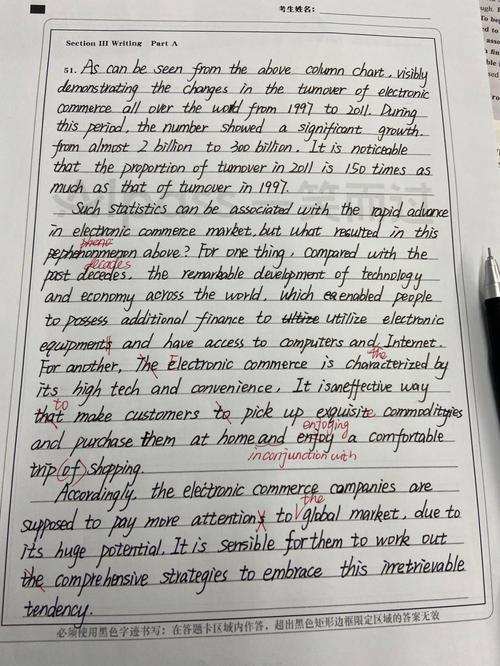 考生姓名:
Section III Writing Part A
51. As can be seen from the above column chart, visibly
demonstrating the changes in the turnover of electronic
commerce all over the world from 1997 to 2011. During
this period, the number showed a significant growth.
from almost 2 billion to 300 billion. It is noticeable
that the proportion of turnover in 2011 is 150 times as
much as that of turnover in 1997.
Such statistics can be associated with the rapid advance
in electronic commerce market, but what resulted in this
pheno
pephenhonmenon above? For one thing, compared with the
decades
past decedes, the remarkable development of technology
and economy across the world, which enabled people
to possess additional finance to utilize electronic
equipments and have access to computers and Internet.
the
For another, The Electronic commerce is characterized by
its high tech and convenience. It is an effective way
to
that make customers to pick up exquisite commodityies
enjoying
and purchase them at home and enjoy a comfortable
in conjunction with
trip (of) shopping.
Accordingly, the electronic commerce companies are
the
supposed to pay more attentions to global market, due to
its huge potential. It is sensible for them to work out
the comprehensive strategies to embrace this irretrievable
tendency.
必须使用黑色字迹书写; 在答题卡区域内作答, 超出黑色矩形边框限定区域的答案无效